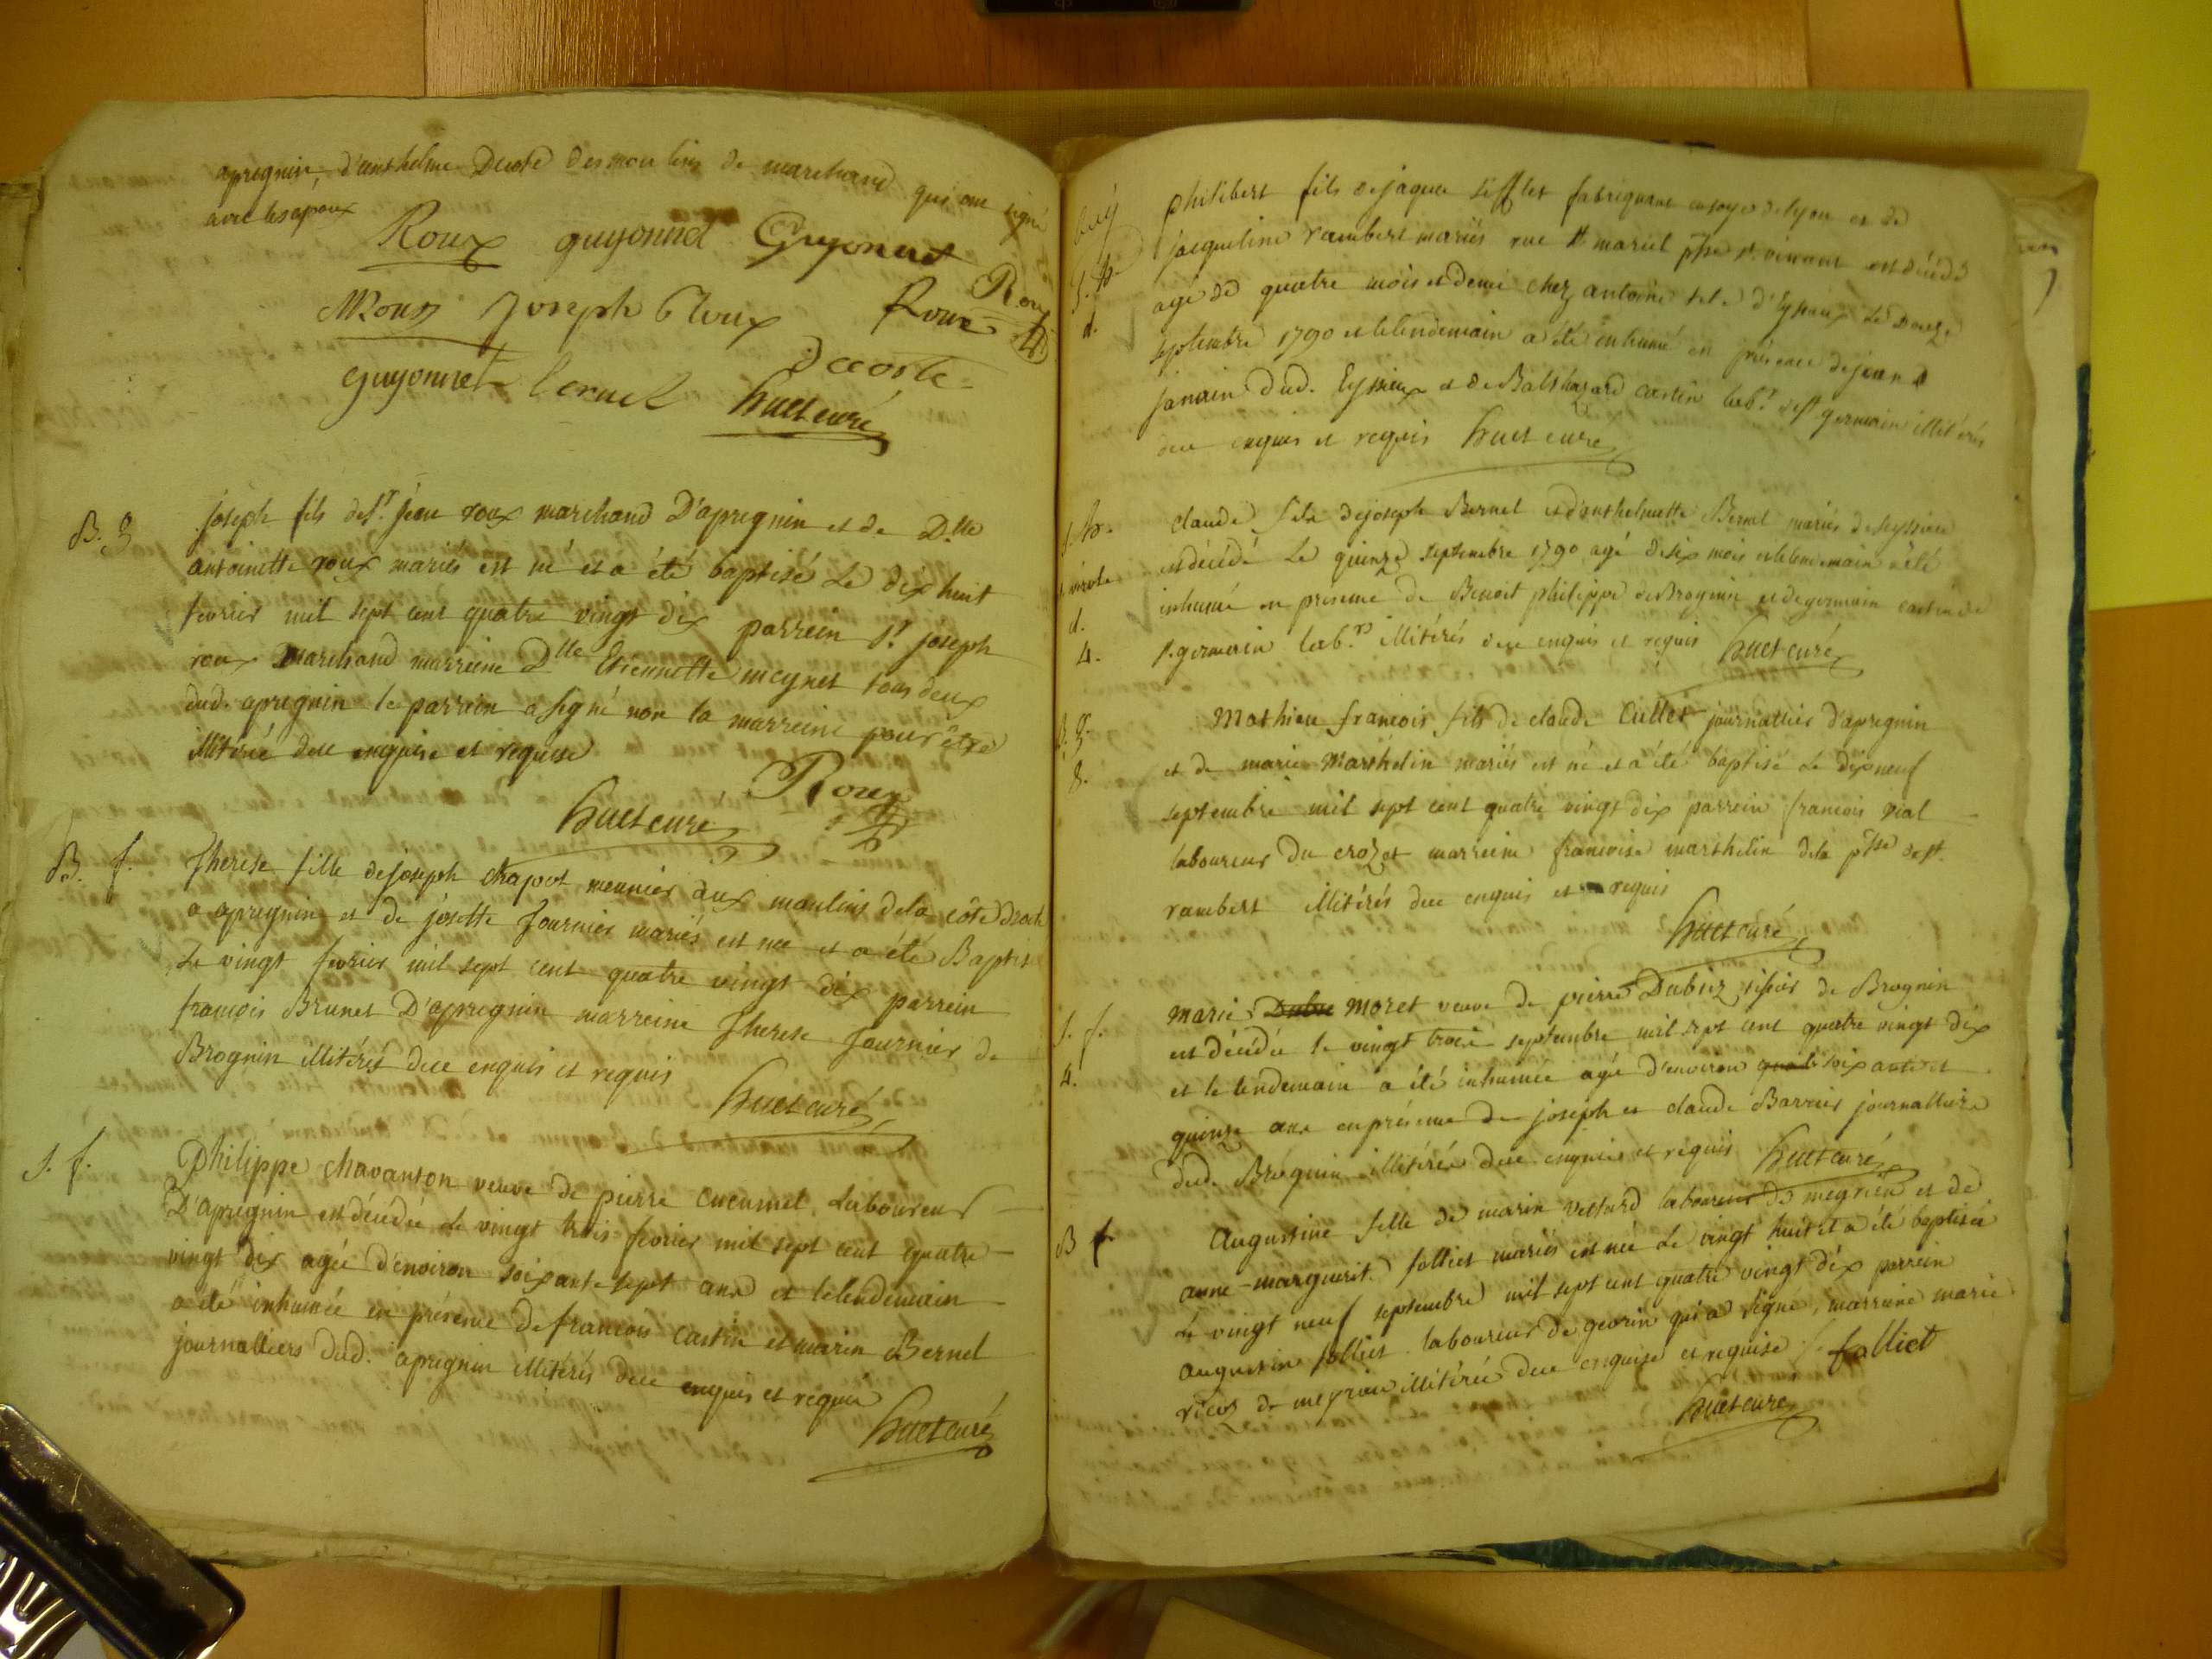 apregnin, d'anthelme Decote des moulins de marchand qui ont signé
avec les epoux
Roux guyonnet Guyonnet
Roux Joseph Roux Roux Roux
guyonnet Decoste
huet curé
B. g
joseph fils de Sr. jean roux marchand D'apregnin et de Dlle
antoinette roux mariés est né et a été baptisé Le dix huit
fevrier mil sept cent quatre vingt dix parrein Sr. joseph
roux marchand marreine Dlle Etiennette meynet tous deux
dud. apregnin le parrain a signé non la marreine pour être
illitérée deue enquise et requise
Roux
huet curé
B. f.
Therese fille de joseph chapot meunier aux moulins dela côte
a apregnin et de josette fournier mariés est née et a été Baptis
Le vingt fevrier mil sept cent quatre vingt dix parrein
francois Brunet D'apregnin marreine Therese fournier de
Brognin illitérés deue enquis et requis
huet curé
S. f.
Philippe chavanton veuve de pierre cucurnel Laboureur
D'apregnin est décédée Le vingt trois fevrier mil sept cent quatre
vingt dix agée d'environ soixante sept ans et le lendemain
a été inhumée en présence de francois Castin et marin Bernel
journalliers dud. apregnin illitérés deue enquis et requis
huet curé
philibert fils de jaque sifflet fabriquant en soye de lyon et de
jacqueline rambert mariés rue St. marcel psse St. vincent est décédé
agé de quatre mois et demi chez antoine d'Eyssieux Le douze
septembre 1790 et le lendemain a été inhumé en présence de jean
janain dud. Eyssieux et de Balthazard castin labr. de St germain illitérés
deue enquis et requis huet curé
claude fils de joseph Bernel et d'anthelmette Bernel mariés
est décédé Le quinze septembre 1790 agé de six mois et le lendemain a été
inhumé en presence de Benoit philippe de Brognin et de germain castin de
St. germain labrs. illitérés deue enquis et requis huet curé
B. g.
8.
Mathieu francois fils de claude Cullet journallier d'apregnin
et de marie Marthelin mariés est né et a été baptisé Le dix neuf
septembre mil sept cent quatre vingt dix parrein francois vial
laboureur du crozet marreine francoise marthelin dela psse de St.
rambert illitérés deue enquis et requis
huet curé
S. f.
4.
marie Dubie moret veuve de pierre Dubiez de Brognin
est décédée le vingt trois septembre mil sept cent quatre vingt dix
et le lendemain a été inhumée agée d'environ soixante et
quinze ans en présence de joseph et claude Barrier journalliers
dud. Brognin illitérés deue enquis et requis huet curé
B f
Augustine fille de marin Vettard laboureur de megrieu et de
anne-marguerite folliet mariés est née Le vingt huit et a été baptisée
Le vingt neuf septembre mil sept cent quatre vingt dix parrein
augustin folliet laboureur de gevrin qui a signé, marreine marie
de megrieu illitérée deue enquise et requise folliet
huet curé